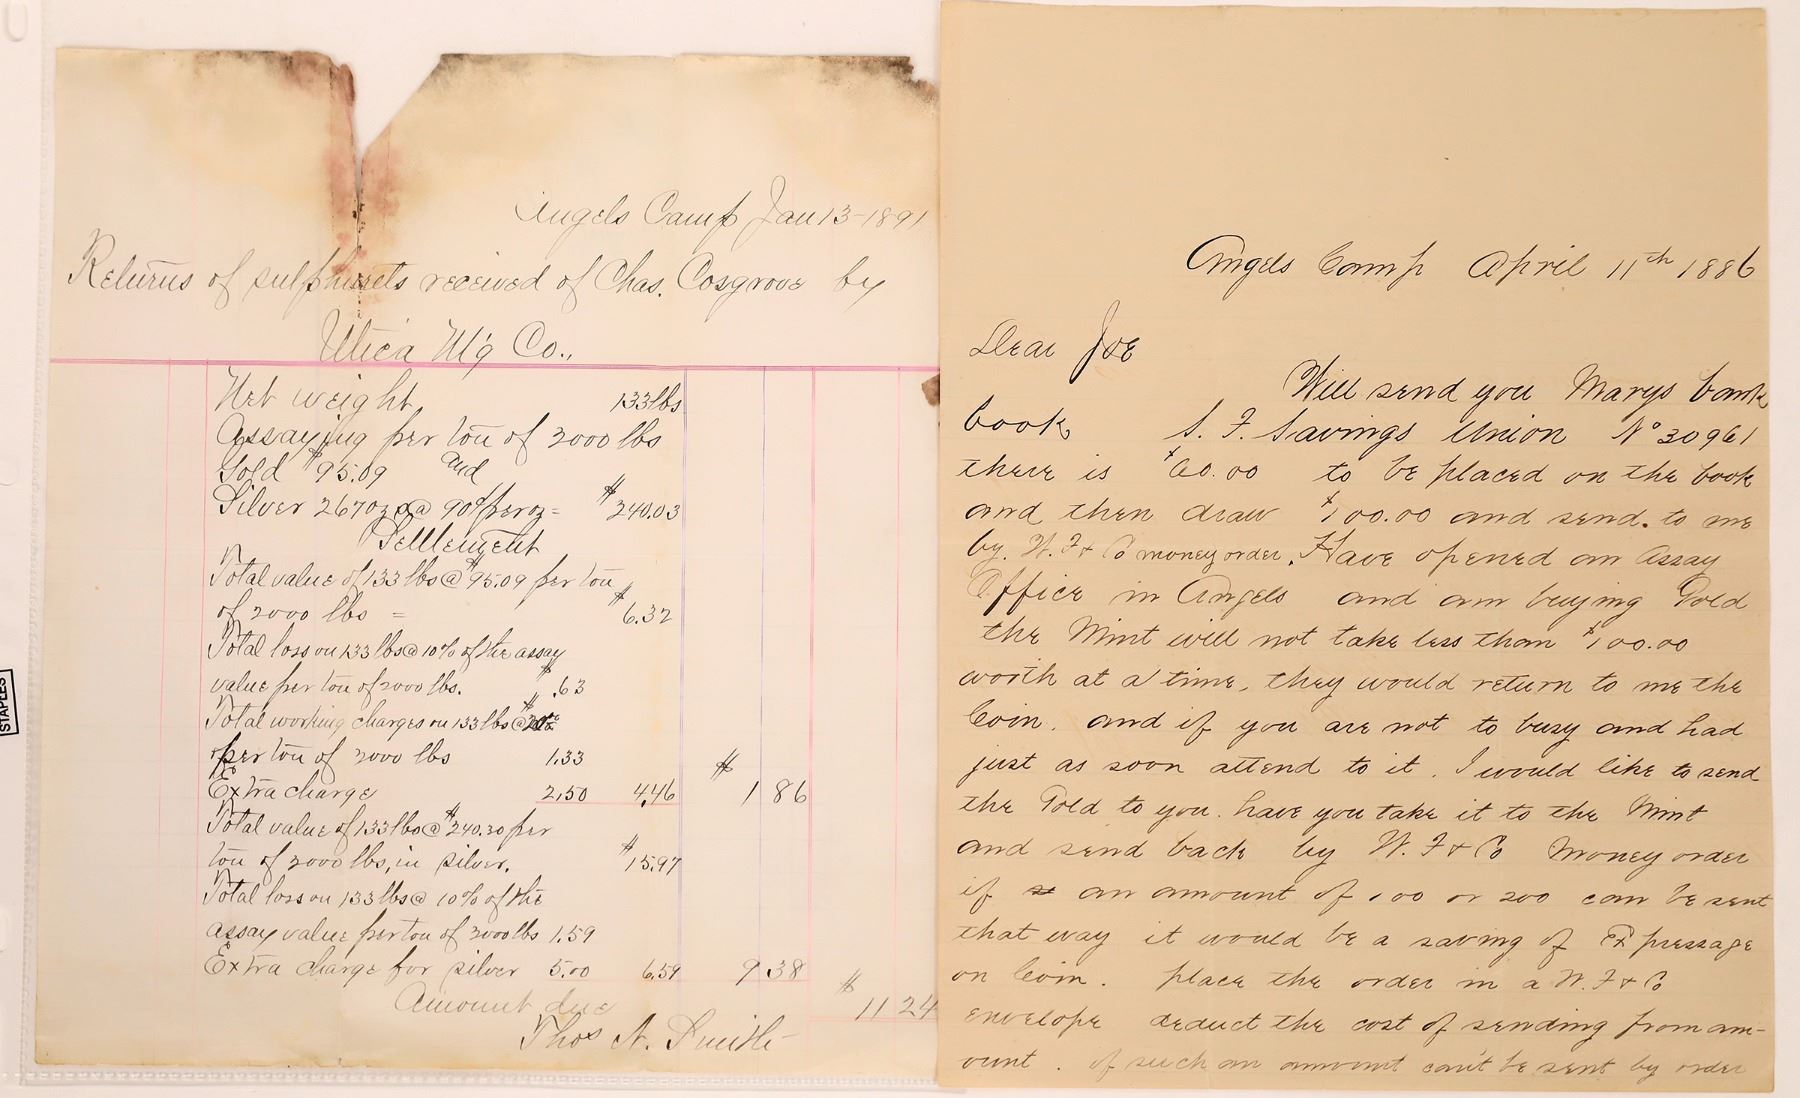 Angels Camp Jan 13-1891
Returns of sulphurets received of Chas. Cosgrove by
Utica M'g Co.,
Net weight 133 lbs
Assaying per ton of 2000 lbs
Gold $95.09 and
Silver 267 ozs @ 90¢ per oz = $240.03
Settlement
Total value of 133 lbs @ $95.09 per ton
of 2000 lbs = $6.32
Total loss on 133 lbs @ 10% of the assay
value per ton of 2000 lbs. $.63
Total working charges on 133 lbs @ $
per ton of 2000 lbs 1.33
Extra charge 2.50 4.46 $1 86
Total value of 133 lbs @ $240.30 per
ton of 2000 lbs, in silver. $15.97
Total loss on 133 lbs @ 10% of the
assay value per ton of 2000 lbs 1.59
Extra charge for silver 5.00 6.59 9 38
Amount due $11 24
Thos N. Smith
STAPLES
Angels Camp April 11th 1886
Dear Joe
Will send you Marys bank
book S. F. Savings Union No 30961
there is $60.00 to be placed on the book
and then draw $100.00 and send. to me
by. W. F & Co money order. Have opened an Assay
Office in Angels and am buying Gold
the Mint will not take less than $100.00
worth at a time, they would return to me the
Coin. and if you are not to busy and had
just as soon attend to it. I would like to send
the Gold to you. have you take it to the Mint
and send back by W. F & Co Money order
if an amount of 100 or 200 can be sent
that way it would be a saving of Expressage
on Coin. place the order in a W. F & Co
envelope deduct the cost of sending from am-
ount. if such an ammount can't be sent by order